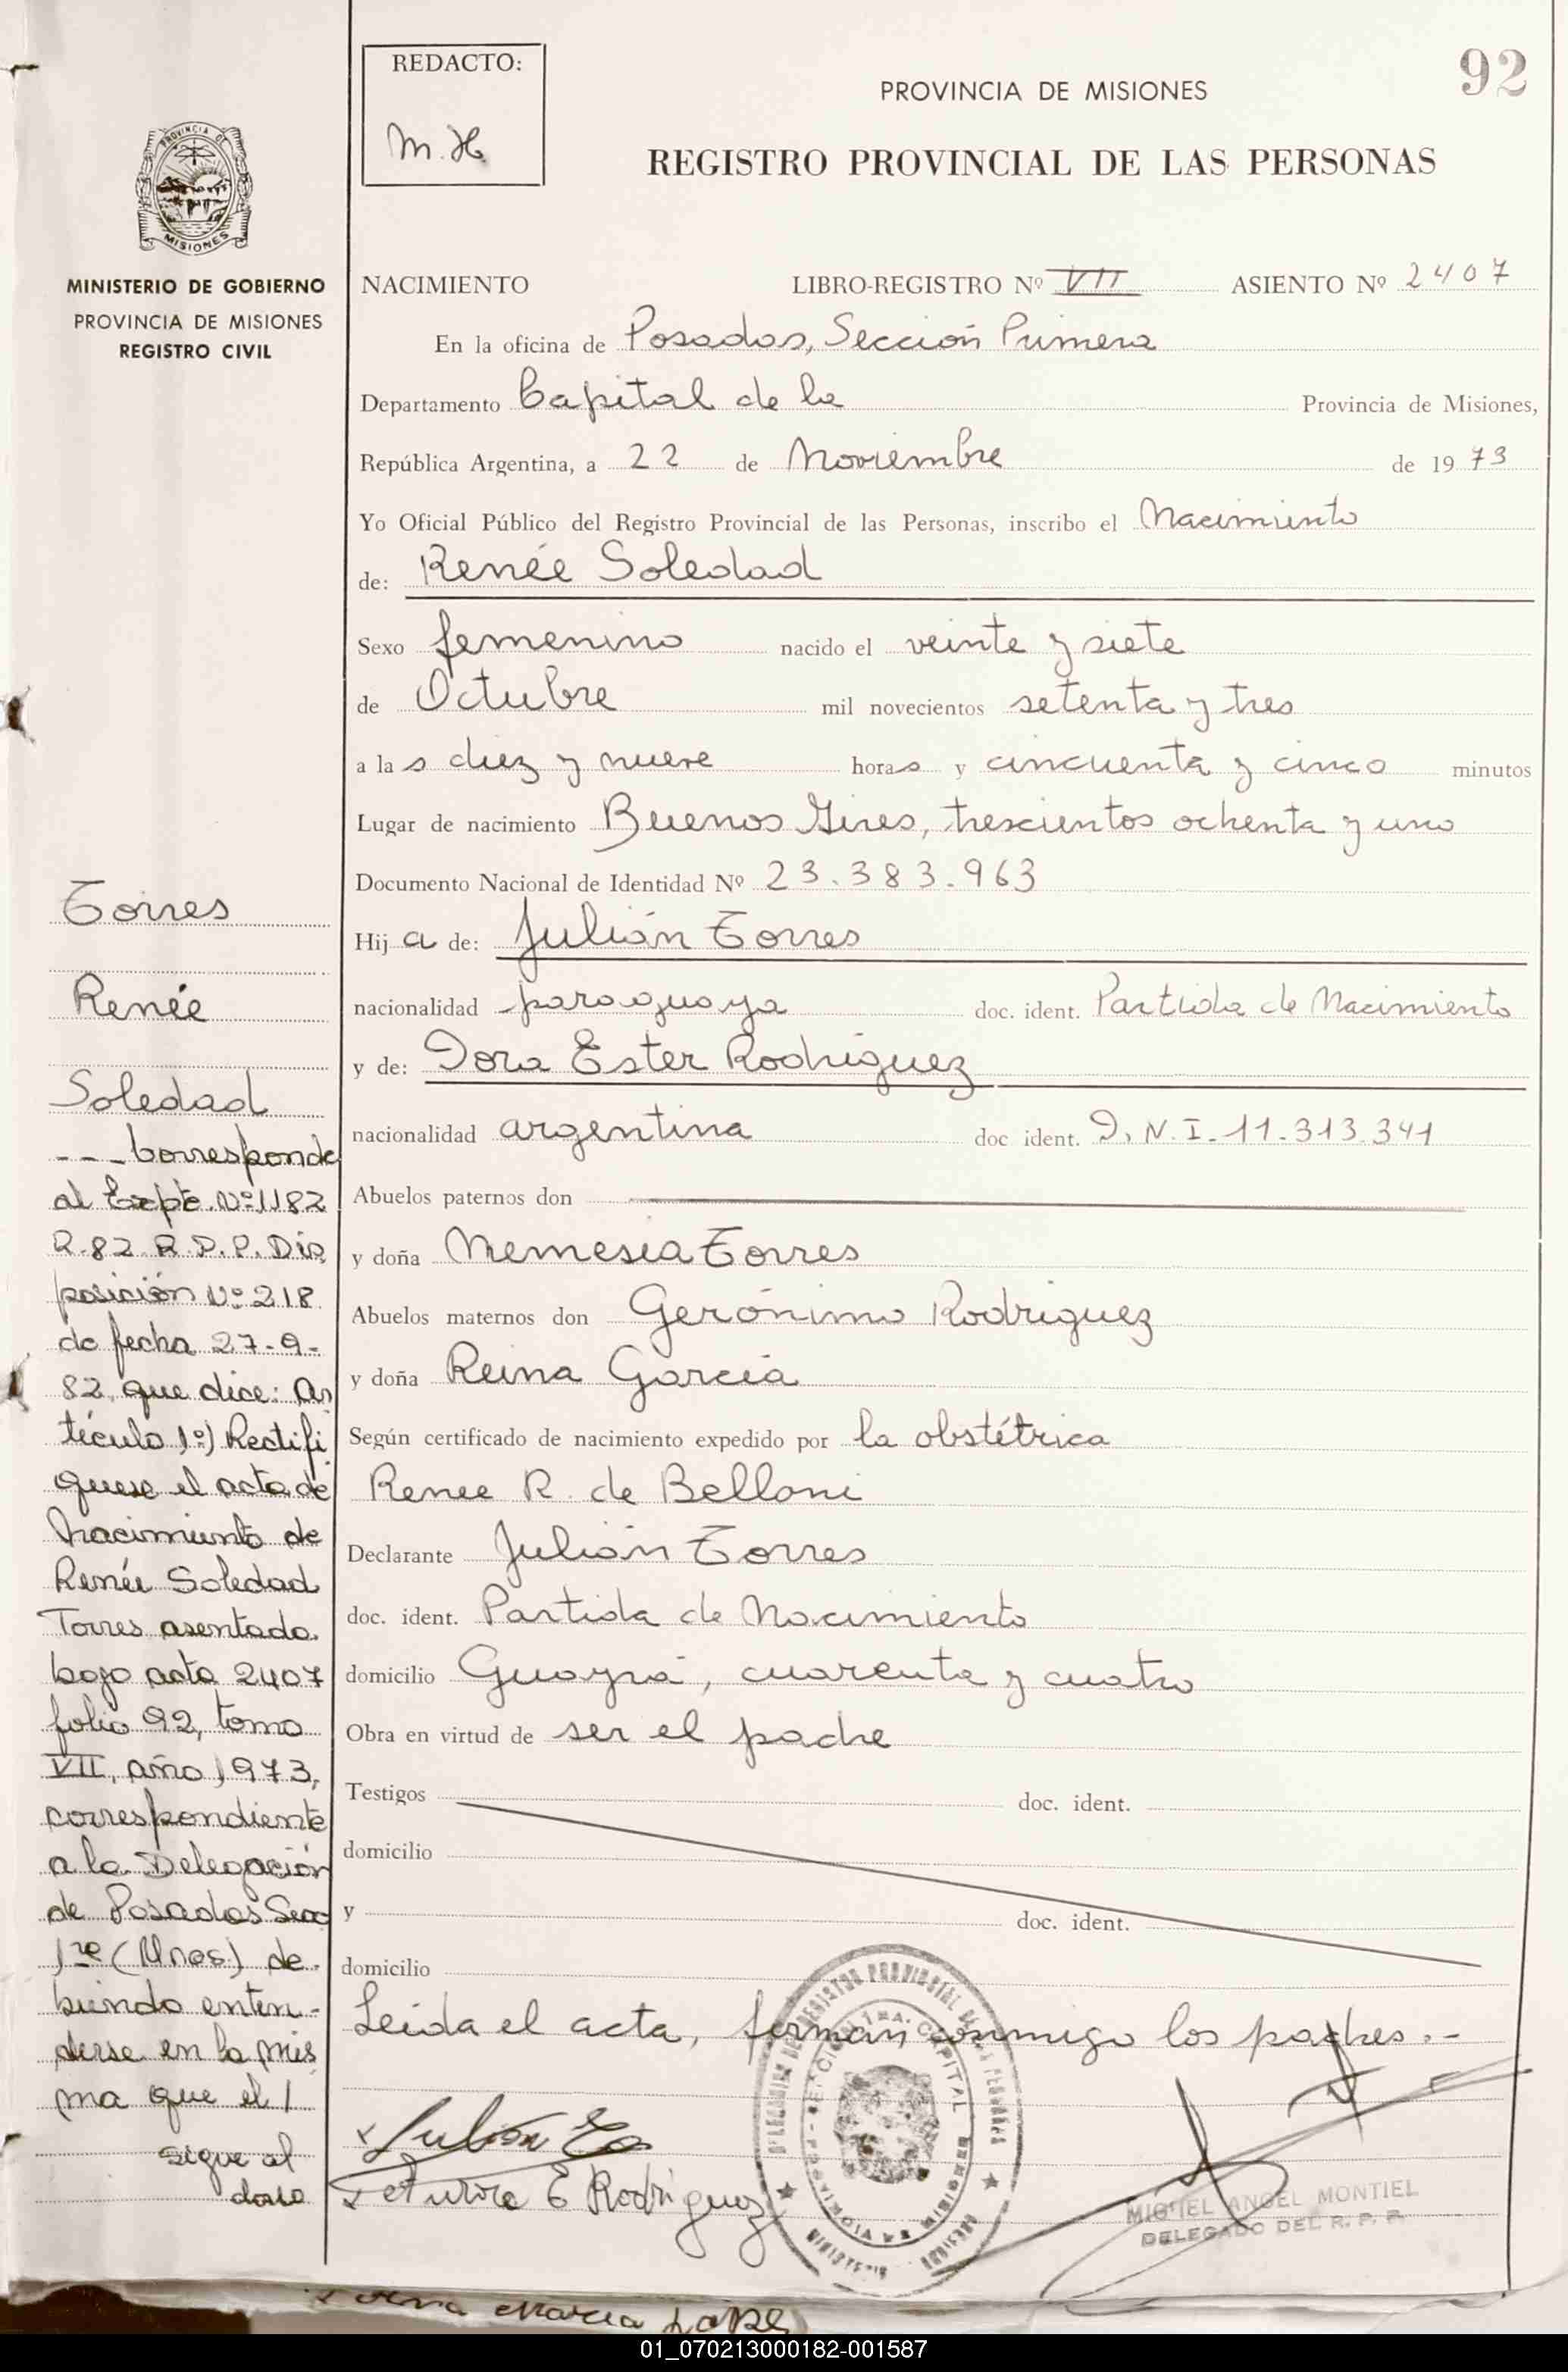 92
REDACTO:
M.H.
PROVINCIA DE MISIONES
REGISTRO PROVINCIAL DE LAS PERSONAS
PROVINCIA DE
MISIONES
MINISTERIO DE GOBIERNO
PROVINCIA DE MISIONES
REGISTRO CIVIL
NACIMIENTO LIBRO-REGISTRO Nº VII ASIENTO Nº 2407
En la oficina de Posadas, Sección Primera
Departamento Capital de la Provincia de Misiones,
República Argentina, a 22 de Noviembre de 1973
Yo Oficial Público del Registro Provincial de las Personas, inscribo el Nacimiento
de: Renée Soledad
Sexo femenino nacido el veinte y siete
de Octubre mil novecientos setenta y tres
a las diez y nueve horas y cincuenta y cinco minutos
Lugar de nacimiento Buenos Aires, trescientos ochenta y uno
Documento Nacional de Identidad Nº 23.383.963
Hija de: Julián Torres
nacionalidad paraguaya doc. ident. Partida de Nacimiento
y de: Dora Ester Rodríguez
nacionalidad argentina doc ident. D.N.I. 11.313.341
Abuelos paternos don
y doña Nemesia Torres
Abuelos maternos don Gerónimo Rodriguez
y doña Reina García
Según certificado de nacimiento expedido por la obstétrica
Renee R. de Belloni
Declarante Julián Torres
doc. ident. Partida de Nacimiento
domicilio Guayrá, cuarenta y cuatro
Obra en virtud de ser el padre
Testigos doc. ident.
domicilio
y doc. ident.
domicilio
Leída el acta, firman conmigo los padres.-
Julián To
E Rodriguez
MIGUEL ANGEL MONTIEL
DELEGADO DEL R. P. P.
Torres
Renée
Soledad
--- Corresponde
al Expte. Nº 1182
R.82 R.P.P. Dis
posición Nº 218
de fecha 27-9-
82, que dice: Ar
tículo 1º) Rectifi
quese el acta de
Nacimiento de
Renée Soledad
Torres asentada
bajo acta 2407
folio 92, tomo
VII, año 1973,
correspondiente
a la Delegación
de Posadas Secc
1ra (Mnes) de
biendo enten-
derse en la mis
ma que el /
sigue al
dorso
01_070213000182-001587